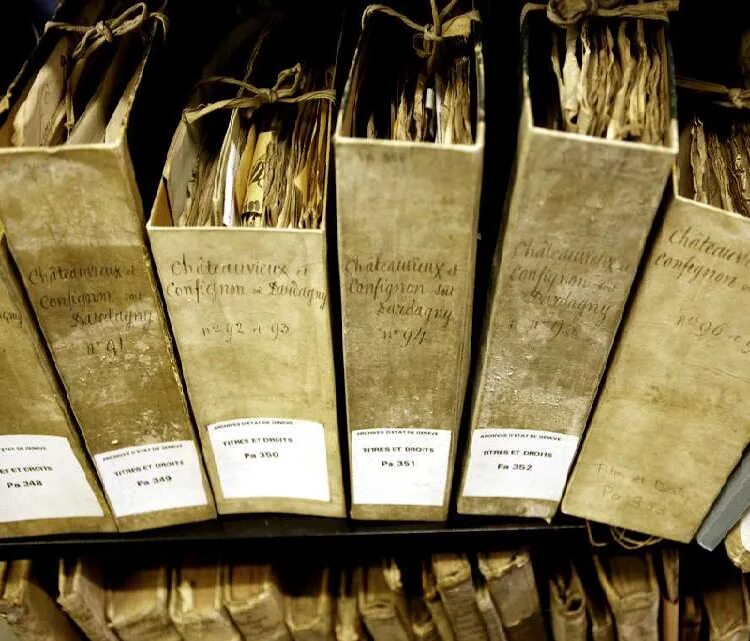 ÉTAT DE GENÈVE
RES ET DROITS
Pa 348
Châteauvieux et
Confignon sur
Dardagny
n° 91
ARCHIVES D'ÉTAT DE GENÈVE
TITRES ET DROITS
Pa 349
Châteauvieux et
Confignon sur Dardagny
n°s 92 et 93
ARCHIVES D'ÉTAT DE GENÈVE
TITRES ET DROITS
Pa 350
Châteauvieux et
Confignon sur
Dardagny
n° 94
ARCHIVES D'ÉTAT DE GENÈVE
TITRES ET DROITS
Pa 351
Châteauvieux et
Confignon sur
Dardagny
ARCHIVES D'ÉTAT DE GENÈVE
TITRES ET DROITS
Pa 352
Châteauvieux
Confignon
n°s 96 e
Titres et Droits